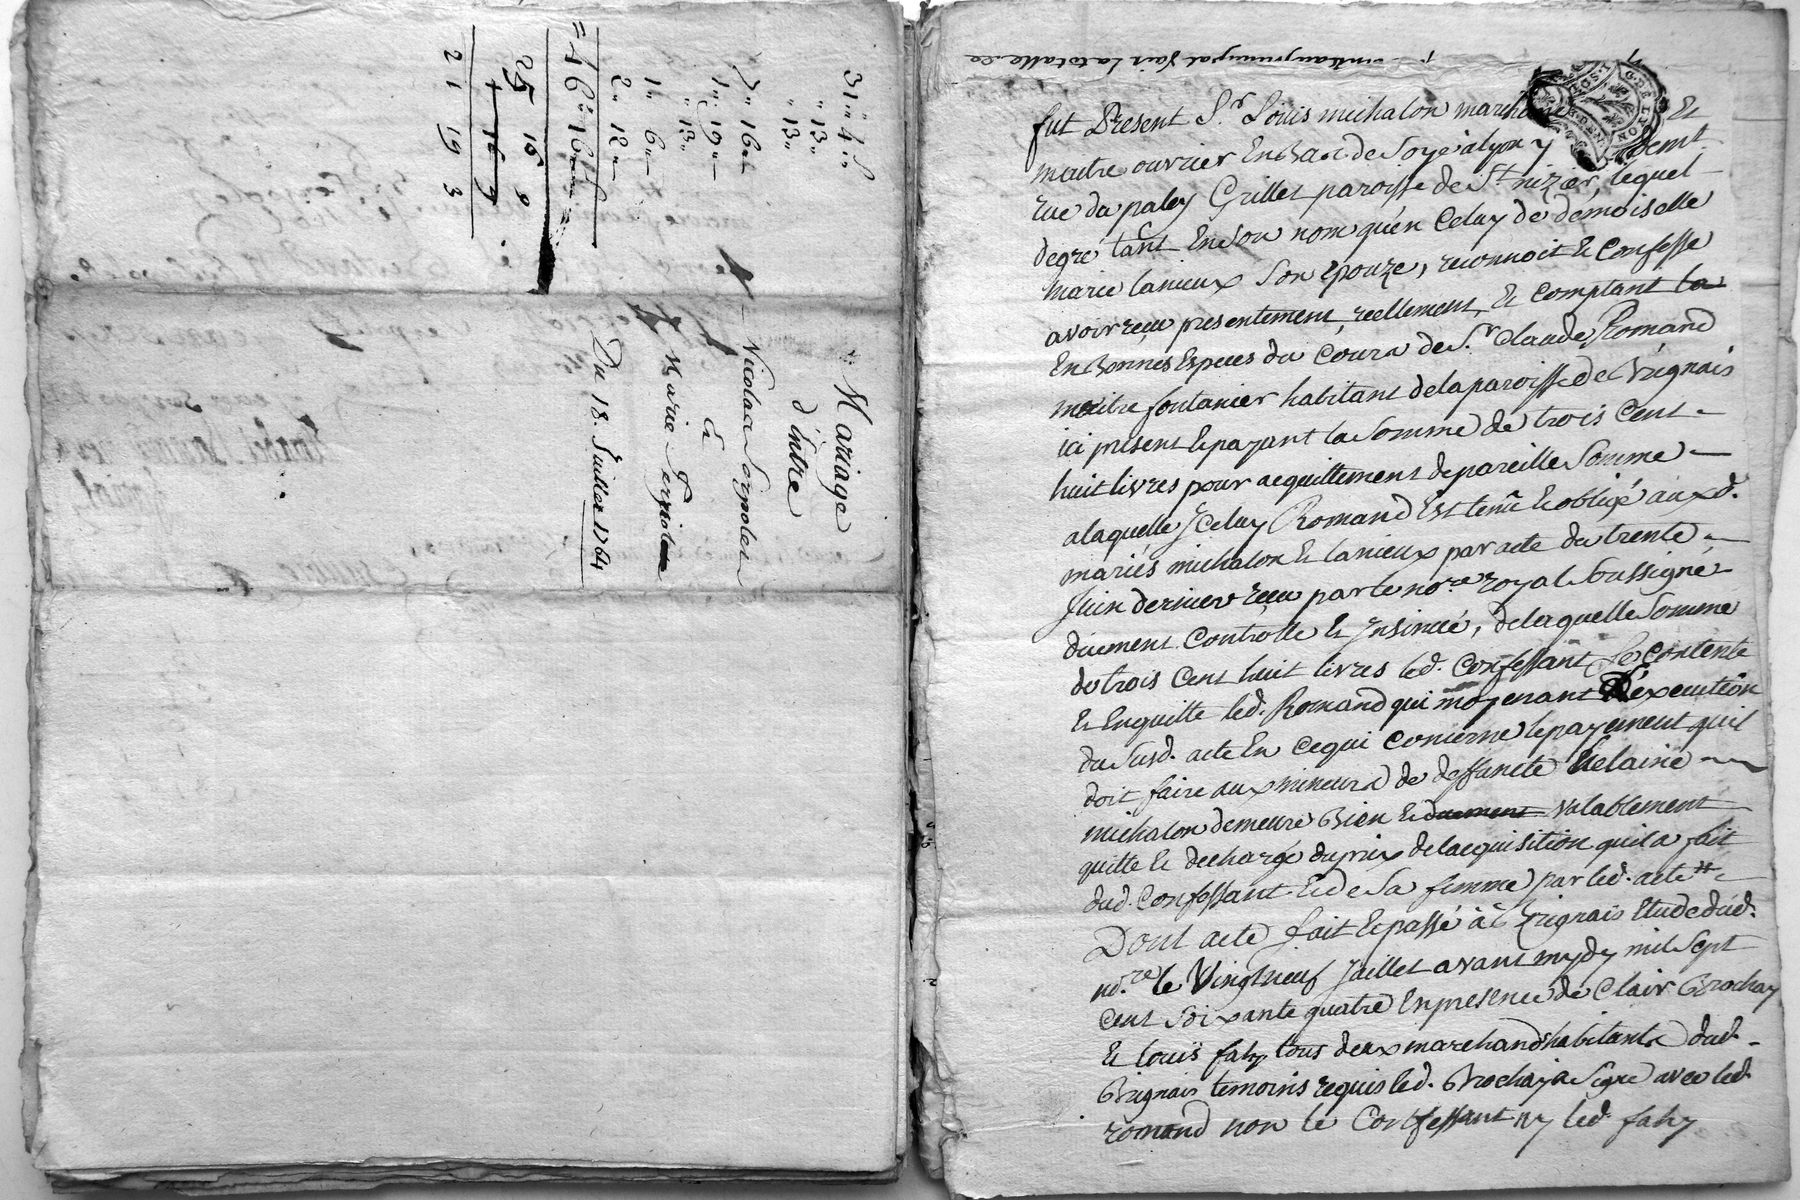 Mariage
d'entre
Nicolas
Et
Marie
Du 18. Juillet 1764
31" 4s
" 13"
" 13"
" 13"
1" 6"
2" 12"
25 16 9
21 19 3
fut Présent Sr. Loüis michalon marchand Et
maitre ouvrier En Bas de Soye a lyon y demt.
rue du palay Grillet paroisse de St. nizier, lequel
degré tant En Son nom qu'en Celuy de demoiselle
Marie lanieux Son Epouze, reconnoit Et Confesse
avoir reçu presentement, reellement, Et Comptant
En Bonnes Especes du Cours de Sr. Claude Romand
maitre fontanier habitant de la paroisse de Brignais
ici présent Et payant la Somme de trois Cent
huit livres pour acquittement de pareille Somme
a laquelle Iceluy Romand Est tenu Et obligé aux d.
mariés michalon Et lanieux par acte du trente
Juin dernier reçu par le nore. royal Soussigné
duement Controllé Et Insinüé, de laquelle Somme
de trois Cent huit livres led. Confessant Se Contente
Et En quitte led. Romand qui moyenant L'éxecution
du Susd. acte En Ce qui Concerne le payement qu'il
doit faire aux mineurs de deffuncte
michalon demeure Bien Et duement valablement
quitte Et dechargé du prix de l'acquisition qu'il a fait
dud. Confessant Et de Sa femme par led. acte
Dont acte fait Et passé à Brignais Etude dud.
nore. le Vingt neuf Juillet avant mydy mil Sept
Cent Soixante quatre En presence de Clair Brochay
Et Loüis fahy tous deux marchands habitants dud.
Brignais temoins requis led. Brochay a Signé avec led.
romand non le Confessant ny led. fahy